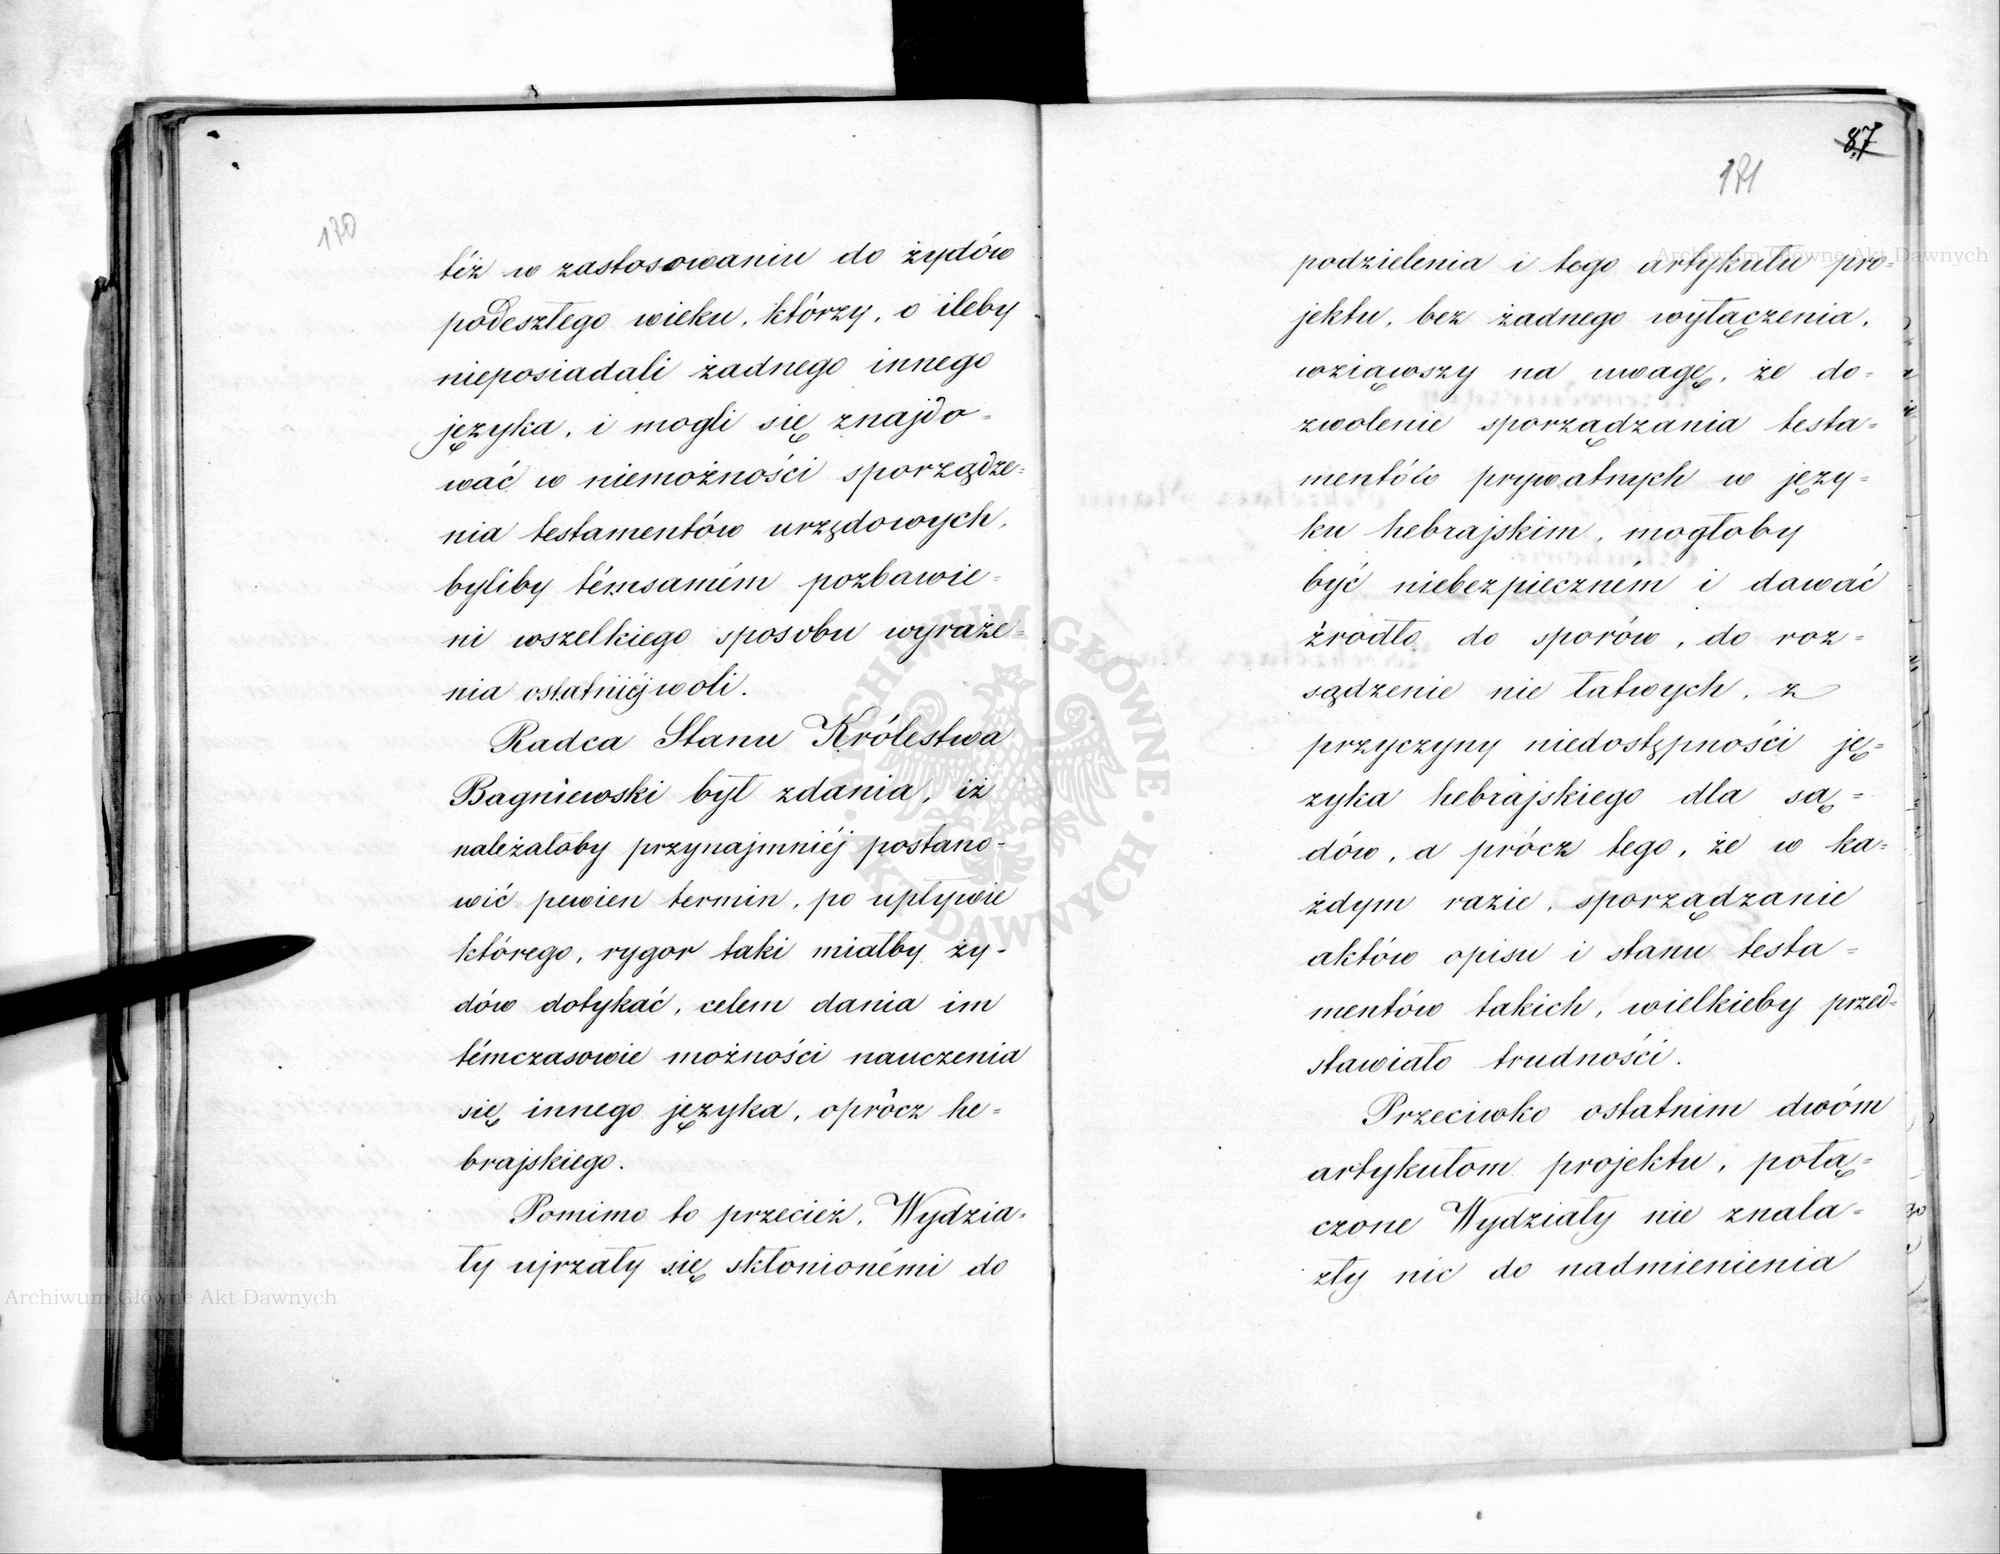 170
téż w zastosowaniu do żydów
podeszłego wieku, którzy, o ileby
nieposiadali żadnego innego
języka, i mogli się znajdo=
wać w niemożności sporządze=
nia testamentów urzędowych,
byliby témsamém pozbawie=
ni wszelkiego sposobu wyraże=
nia ostatniéj woli.
Radca Stanu Królestwa
Bagniewski był zdania, iż
należałoby przynajmniéj postano=
wić pewien termin, po upływie
którego, rygor taki miałby ży=
dów dotykać, celem dania im
témczasowie możności nauczenia
się innego języka, oprócz he=
brajskiego.
Pomimo to przecież, Wydzia=
ły ujrzały się skłonionémi do
87
171
podzielenia i tego artykułu pro=
jektu, bez żadnego wyłączenia,
wziąwszy na uwagę, że do=
zwolenie sporządzania testa=
mentów prywatnych w języ=
ku hebrajskim, mogłoby
być niebezpieczném i dawać
źródło do sporów, do roz=
sądzenie nie łatwych, z
przyczyny niedostępności ję=
zyka hebrajskiego dla są=
dów, a prócz tego, że w ka=
żdym razie, sporządzanie
aktów opisu i stanu testa=
mentów takich, wielkieby przed=
stawiało trudności.
Przeciwko ostatnim dwóm
artykułom projektu, połą=
czone Wydziały nie znala=
zły nic do nadmienienia
Archiwum Główne Akt Dawnych
Archiwum Główne Akt Dawnych
ARCHIWUM GŁÓWNE AKT DAWNYCH